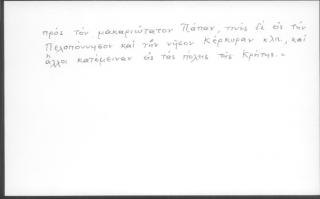 πρὸς τὸν μακαριώτατον Πάπαν, τινὲς δὲ εἰς τὴν
Πελοπόννησον καὶ τὴν νῆσον Κέρκυραν κλπ., καὶ
ἄλλοι κατέμειναν εἰς τὰς πόλεις τῆς Κρήτης.-